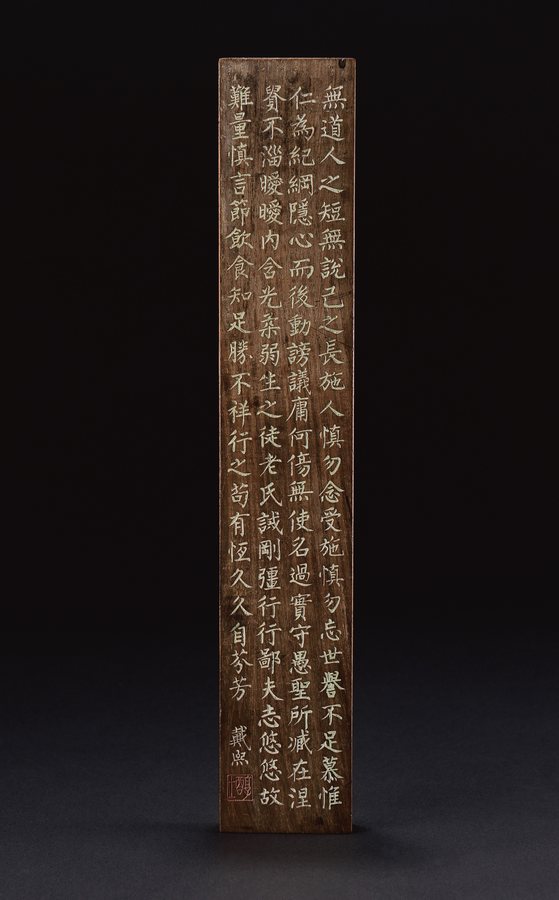 無道人之短無說己之長施人慎勿念受施慎勿忘世譽不足慕惟
仁為紀綱隱心而後動謗議庸何傷無使名過實守愚聖所臧在涅
貴不淄曖曖內含光柔弱生之徒老氏誡剛彊行行鄙夫志悠悠故
難量慎言節飲食知足勝不祥行之苟有恆久久自芬芳
戴熙